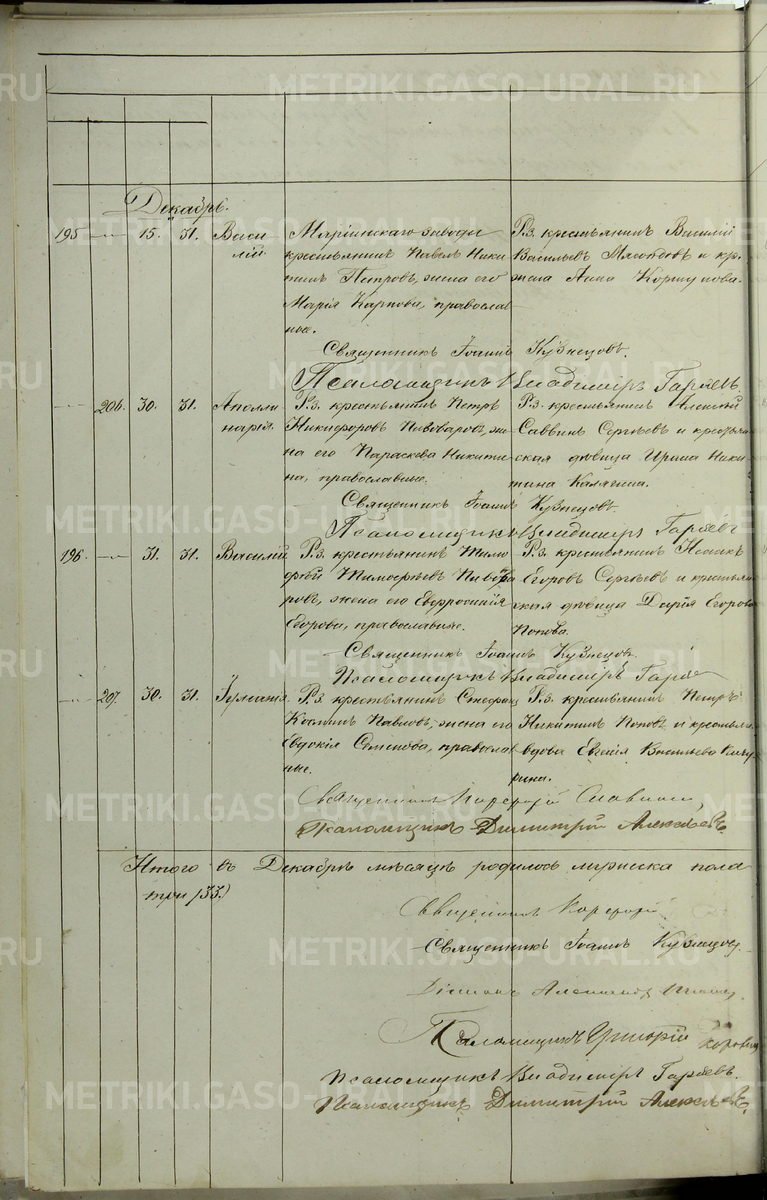 METRIKI.GASO-URAL.RU
Декабрь.
195 — 15. 31. Васи-
лій.
Маріинскаго завода
крестьянинъ Павелъ Ники-
тинъ Петровъ, жена его
Марія Карпова, православ-
ные.
Р.з. крестьянинъ Василій
Васильевъ и кр.
жена Анна Коршунова.
Священникъ Іоаннъ Кузнецовъ.
Псаломщикъ Владиміръ Гаряевъ
— 206. 30. 31. Аполли-
нарія.
Р.з. крестьянинъ Петръ
Никифоровъ Пивоваровъ, же-
на его Параскева Никити-
на, православные.
Р.з. крестьянинъ Алексѣй
Саввинъ Сергѣевъ и крестьян-
ская дѣвица Ирина Ники-
тина Калягина.
Священникъ Іоаннъ Кузнецовъ.
Псаломщикъ Владиміръ Гаряевъ
196. — 31. 31. Василій
Р.з. крестьянинъ Тимо-
фей Тимофеевъ Пивова-
ровъ, жена его Евфросинія
Егорова, православные.
Р.з. крестьянинъ Исаакъ
Егоровъ Сергѣевъ и крестьян-
ская дѣвица Дарія Егорова
Попова.
Священникъ Іоаннъ Кузнецовъ.
Псаломщикъ Владиміръ Гаряев
— 207. 30. 31. Іуліанія.
Р.з. крестьянинъ Стефанъ
Козминъ Павловъ, жена его
Евдокія Семенова, православ-
ные.
Р.з. крестьянинъ Петръ
Никитинъ Поповъ и крестьян.
вдова Евгенія Васильева Кичу-
рина.
Священникъ Порфирій Славнинъ,
Псаломщикъ Димитрій Алексѣевъ.
Итого въ Декабрѣ мѣсяцѣ родилось мужеска пола
три /33.)
Священникъ Порфирій
Священникъ Іоаннъ Кузнецовъ.
Діаконъ Александръ
Псаломщикъ Григорій
Псаломщикъ Владиміръ Гаряевъ.
Псаломщикъ Димитрій Алексѣевъ.